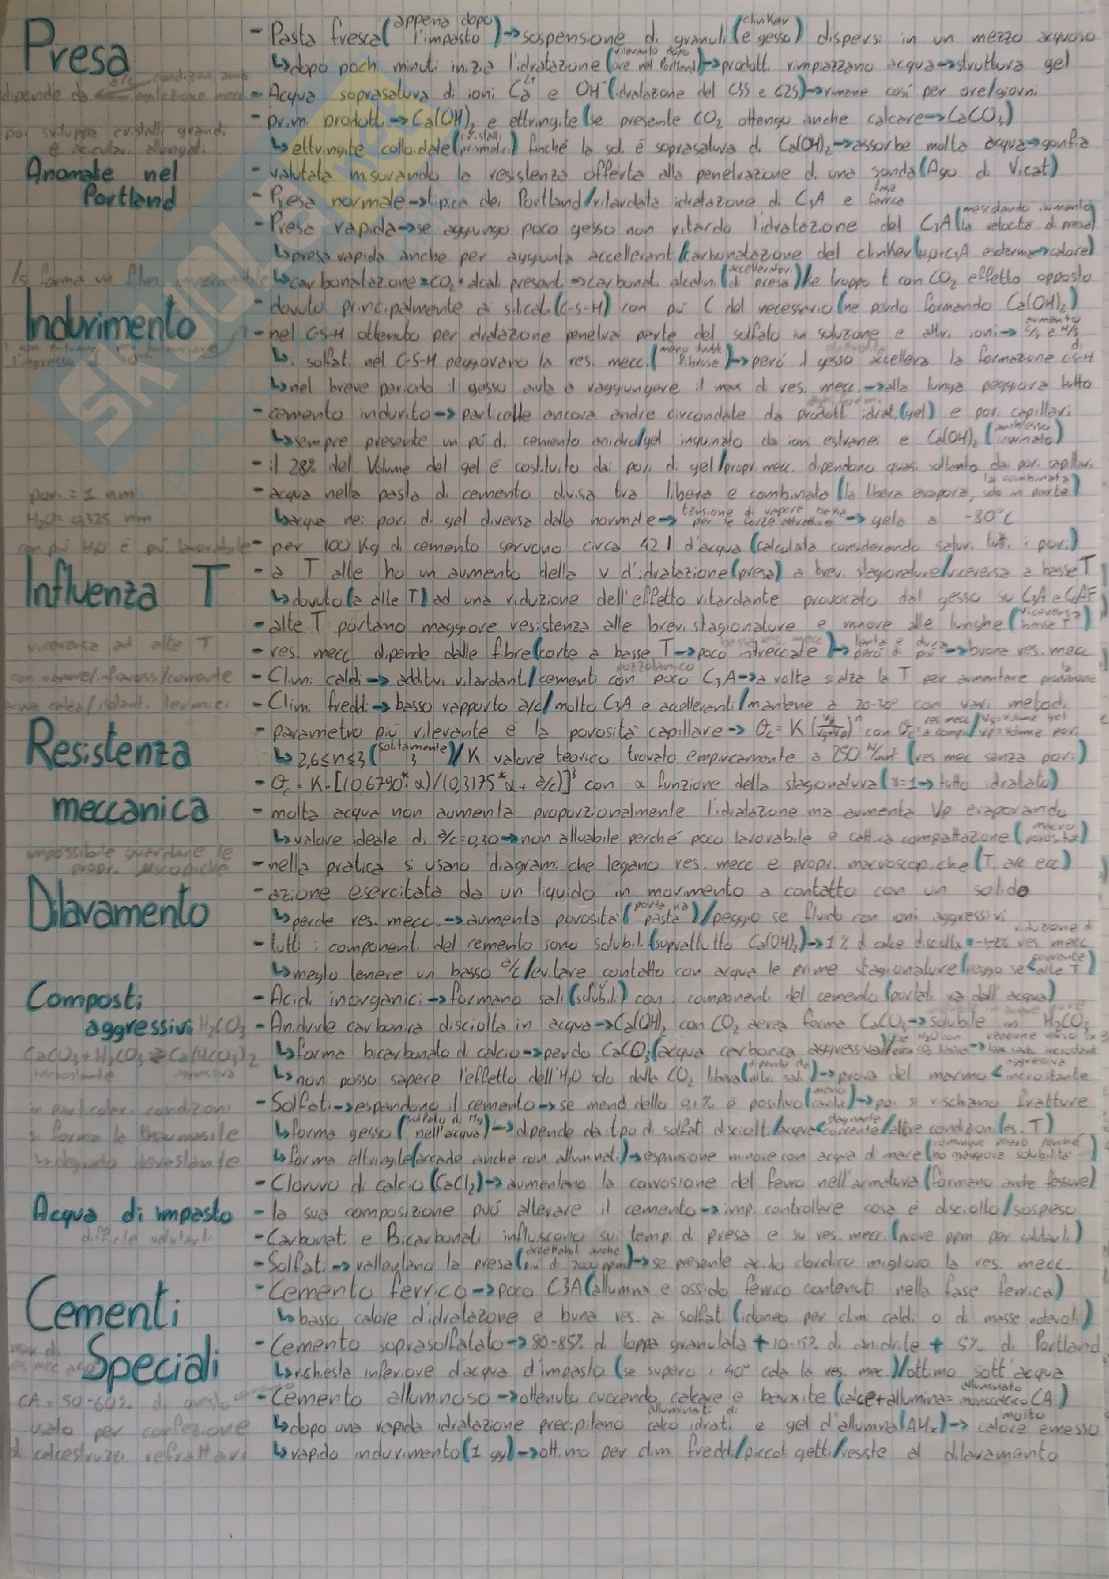 Presa
- Pasta fresca (appena dopo l'impasto) → sospensione di granuli (clinker e gesso) dispersi in un mezzo acquoso
↳ dopo pochi minuti inizia l'idratazione (rilevante dopo ore nel Portland) → prodotti rimpiazzano acqua → struttura gel
dipende da
- Acqua soprasatura di ioni Ca²⁺ e OH⁻ (idratazione del C3S e C2S) → rimane così per ore/giorni
- primi prodotti → Ca(OH)₂ e ettringite (se presente CO₂ ottengo anche calcare → CaCO₃)
poi sviluppa cristalli grandi e aciculari allungati
↳ ettringite colloidale (cristalli prismatici) finché la sol. è soprasatura di Ca(OH)₂ → assorbe molta acqua → gonfia
Anomale nel Portland
- valutata misurando la resistenza offerta alla penetrazione di una sonda (Ago di Vicat)
- Presa normale → tipica dei Portland/ritardata idratazione di C₃A e fase ferrica
- Presa rapida → se aggiungo poco gesso non ritardo l'idratazione del C₃A (mescolando aumento la velocità di presa)
↳ presa rapida anche per aggiunta acceleranti/carbonatazione del clinker/ esotermico → calore)
↳ carbonatazione = CO₂ + alcali presenti → carbonati alcalini (acceleranti di presa)/se troppo t con CO₂ effetto opposto
Indurimento
- dovuto principalmente ai silicati (C-S-H) con più C del necessario (ne perdo formando Ca(OH)₂)
- nel C-S-H ottenuto per idratazione penetra parte del solfato in soluzione e altri ioni → aumento C/S e H/S
↳ i solfati nel C-S-H peggiorano la res. mecc. (meno fibrose) → però il gesso accelera la formazione di CSH
↳ nel breve periodo il gesso aiuta a raggiungere il max di res. mecc. → alla lunga peggiora tutto
- cemento indurito → particelle ancora anidre circondate da prodotti idrat. (gel) e pori capillari
↳ sempre presente un po' di cemento anidro/gel inquinato da ioni estranei e Ca(OH)₂ (ambiente inquinato)
- il 28% del Volume del gel è costituito dai pori di gel/propr. mecc. dipendono quasi soltanto dai pori capillari
pori = 1 nm
- acqua nella pasta di cemento divisa tra libera e combinata (la libera evapora, la combinata solo in parte)
H₂O = 0,325 nm
↳ acqua nei pori di gel diversa dalla normale → tensione di vapore bassa per le forze attrattive → gela a -30°C
con più H₂O è più lavorabile
- per 100 Kg di cemento servono circa 42 l d'acqua (calcolata considerando saturi tutti i pori)
Influenza T
- a T alte ho un aumento della v d'idratazione (presa) a brevi stagionature/viceversa a basse T
↳ dovuto (a alte T) ad una riduzione dell'effetto ritardante provocato dal gesso su C₃A e C₄AF
- alte T portano maggiore resistenza alle brevi stagionature e minore alle lunghe (viceversa basse T)
viceversa ad alte T
- res. mecc dipende dalle fibre (corte a basse T → poco intrecciate) → → buona res. mecc
- Climi caldi → additivi ritardanti/cementi con pozzolanico poco C₃A → a volte si alza la T per aumentare produzione
- Climi freddi → basso rapporto a/c / molto C₃A e acceleranti/mantenere a 20-30° con vari metodi
Resistenza meccanica
- parametro più rilevante è la porosità capillare → σc = K
↳ 2,6≤n≤3 (solitamente 3)/ K valore teorico trovato empiricamente a 250 N/mm² (res mec senza pori)
- σc = K·[(0,6790·α)/(0,3175·α + a/c)]³ con α funzione della stagionatura (α=1 → tutto idratato)
- molta acqua non aumenta proporzionalmente l'idratazione ma aumenta Vp evaporando
↳ valore ideale di a/c = 0,30 → non attuabile perché poco lavorabile e cattiva compattazione (macro porosità)
impossibile guardare le propr. microscopiche
- nella pratica si usano diagrammi che legano res. mecc e propr. macroscopiche (T, a/c ecc)
Dilavamento
- azione esercitata da un liquido in movimento a contatto con un solido
↳ perde res. mecc. → aumenta porosità (porta via pasta)/peggio se fluido con ioni aggressivi
- tutti i componenti del cemento sono solubili (soprattutto Ca(OH)₂) → 1% di calce disciolta = riduzione di res mecc
↳ meglio tenere un basso a/c/evitare contatto con acqua le prime stagionature (peggio se alte T)
Composti aggressivi
- Acidi inorganici → formano sali (solubili) con i componenti del cemento (portati via dall'acqua)
H₂CO₃
- Anidride carbonica disciolta in acqua → Ca(OH)₂ con CO₂ aerea forma CaCO₃ → solubile in H₂CO₃
CaCO₃ + H₂CO₃ ⇌ Ca(HCO₃)₂
incrostante aggressiva
↳ forma bicarbonato di calcio → perdo CaCO₃ (acqua carbonica aggressiva)
↳ non posso sapere l'effetto dell'H₂O solo dalla CO₂ libera → prova del marmo < aggressiva incrostante
in particolari condizioni
- Solfati → espandono il cemento → se meno dello 0,1% è positivo → poi si rischiano fratture
si forma la thaumasite
↳ forma gesso (solfato di Mg nell'acqua) → dipende da tipo di solfati disciolti/acqua stagnante corrente/altre condizioni (es. T)
↳ forma ettringite (attacco anche con alluminati) → espansione minore con acqua di mare
- Cloruro di calcio (CaCl₂) → aumentano la corrosione del ferro nell'armatura (formano anche fessure)
Acqua di impasto
- la sua composizione può alterare il cemento → imp. controllare cosa è disciolto/sospeso
difficile valutarli
- Carbonati e Bicarbonati influiscono sui tempi di presa e su res. mecc. (1000 ppm per solubili)
- Solfati → rallentano la presa (accettabili anche più di 2000 ppm) → se presente acido cloridrico migliora la res. mecc.
Cementi Speciali
- Cemento ferrico → poco C3A (allumina e ossido ferrico contenuti nella fase ferrica)
↳ basso calore d'idratazione e buna res. ai solfati (idoneo per climi caldi o di masse notevoli)
- Cemento soprasolfatato → 80-85% di loppa granulata + 10-15% di anidrite + 5% di Portland
↳ richiesta inferiore d'acqua d'impasto (se supero i 40° cala la res. mec.)/ottimo sott'acqua
CA = 50-60% di questo
- Cemento alluminoso → ottenuto cuocendo calcare e bauxite (calce + allumina = alluminato monocalcico CA)
usato per confezionare
↳ dopo una rapida idratazione precipitano alluminati di calcio idrati e gel d'allumina (AHₓ) → molto calore emesso
di calcestruzzi refrattari
↳ rapido indurimento (1 gg) → ottimo per climi freddi/piccoli getti/resiste al dilavamento